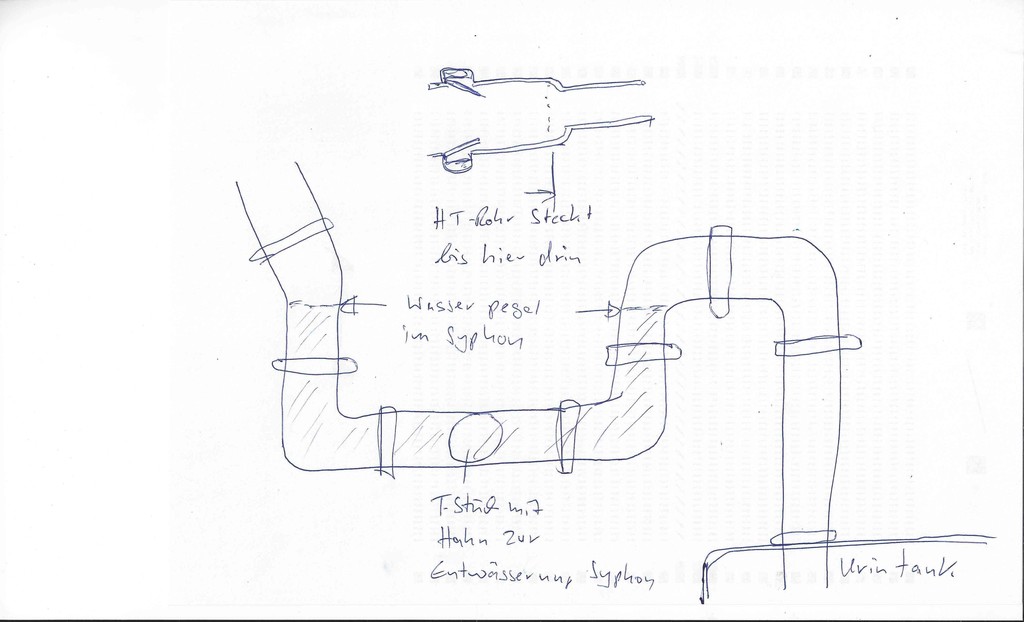 HT-Rohr steckt
bis hier drin
Wasserpegel
im Syphon
T-Stück mit
Hahn zur
Entwässerung Syphon
Urintank